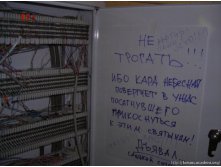 НЕ
ТРОГАТЬ!!!
ИБО КАРА НЕБЕСНАЯ
ПОВЕРГНЕТ В УЖАС
ПОСЯГНУВШЕГО
ПРИКОСНУТЬСЯ
К ЭТИМ СВЯТЫНЯМ!
ДЬЯВОЛ